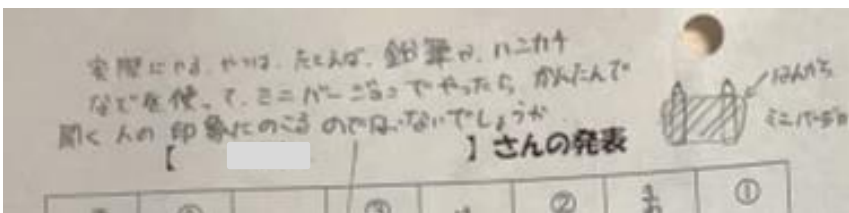 実際にやる、やつは、たとえば、鉛筆や、ハンカチ
などを使って、ミニバージョンでやったら、かんたんで
聞く人の印象にのこるのではないでしょうか
はんかち
【 】さんの発表
③ ② ①